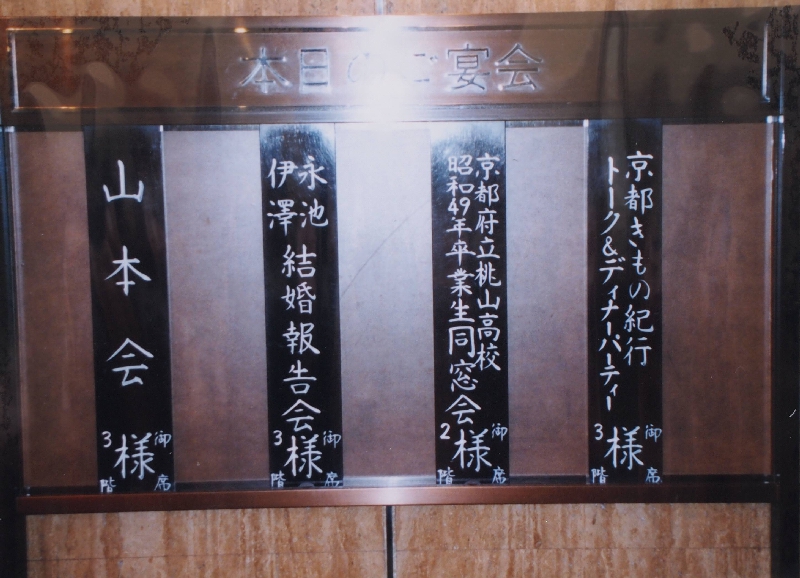 本日のご宴会
京都きもの紀行
トーク&ディナーパーティー
様
御席
3階
京都府立桃山高校
昭和49年卒業生同窓会
様
御席
2階
永池
伊澤
結婚報告会
様
御席
3階
山本会
様
御席
3階